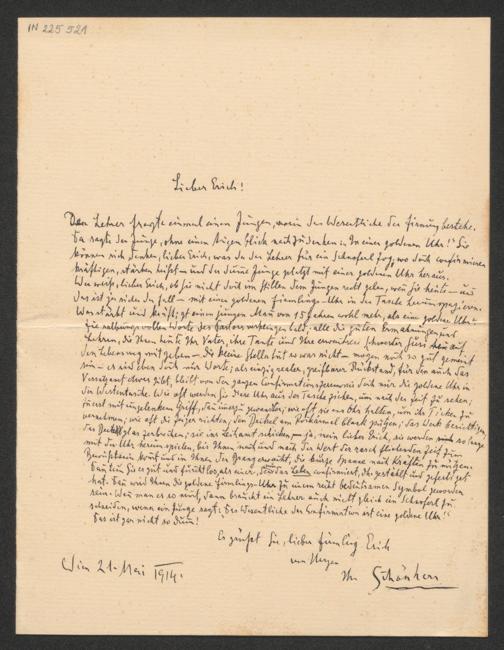 IN 225 521
Lieber Erich!
Der Lehrer fragte einmal einen Jungen, worin das Wesentliche der Firmung bestehe.
Da sagte der Junge, ohne einen Augenblick nachzudenken: In einer goldenen Uhr! Sie
können sich denken, lieber Erich, was da der Lehrer für ein Schaferl zog, wo doch confirmieren
kräftigen, stärken heißt – und der dumme Junge platzt mit einer goldenen Uhr heraus.
Wer weiß, lieber Erich, ob Sie nicht doch im Stillen dem Jungen recht geben, wenn Sie heute – und
das ist ja sicher der Fall – mit einer goldenen Firmlings-Uhr in der Tasche herumspazieren.
Was stärkt und kräftigt einen jungen Mann von 15 Jahren wohl mehr, als eine goldene Uhr –
Die salbungsvollen Worte des Pastors verklingen bald, alle die guten Ermahnungen und
Lehren, die Ihnen heute Ihr Vater, Ihre Tante und Ihre erwachsene Schwester fürs auf
den Lebensweg mitgeben – die kleine Stella tut es wohl nicht – mögen noch so gut gemeint
sein – es sind eben doch nur Worte; als einzig realer, greifbarer Rückstand, für den auch das
Versatzamt etwas gibt, bleibt von der ganzen Confirmationszeremonie doch nur die goldene Uhr in
der Westentasche. Wie oft werden Sie diese Uhr aus der Tasche ziehen, um nach der Zeit zu sehen;
zuerst mit ungelenkem Griff, dann gewandter; wie oft sie ans Ohr halten, um ihr Ticken zu
vernehmen; wie oft die Zeiger richten, den Deckel am Rockärmel blank putzen, das Werk beruhigen,
das Deckelglas zerbrechen, sie ins Leihamt schicken – ja, mein lieber Erich, sie werden so lange
mit der Uhr herumspielen, bis Ihnen nach und nach der Wert der rasch fliehenden Zeit zum
Bewußtsein kommt und in Ihnen der Drang erwacht, die kurze Spanne nach Kräften zu nützen.
Dann sein Sie es gut und dann hat Sie das Leben confirmiert, das gestählt und gefestigt
hat. Dann wird Ihnen die goldene Firmlings-Uhr zu einem recht bedeutsamen Symbol geworden
sein. Wenn man es so nimmt, dann braucht ein Lehrer auch nicht gleich ein Schaferl zu
schneiden, wenn ein Junge sagt: Das Wesentliche der Confirmation ist eine goldene Uhr!
Das ist gar nicht so dumm!
Es grüßt Sie, lieber Firmling Erich
von Herzen
Ihr Schönherr
Wien 21. Mai 1914.